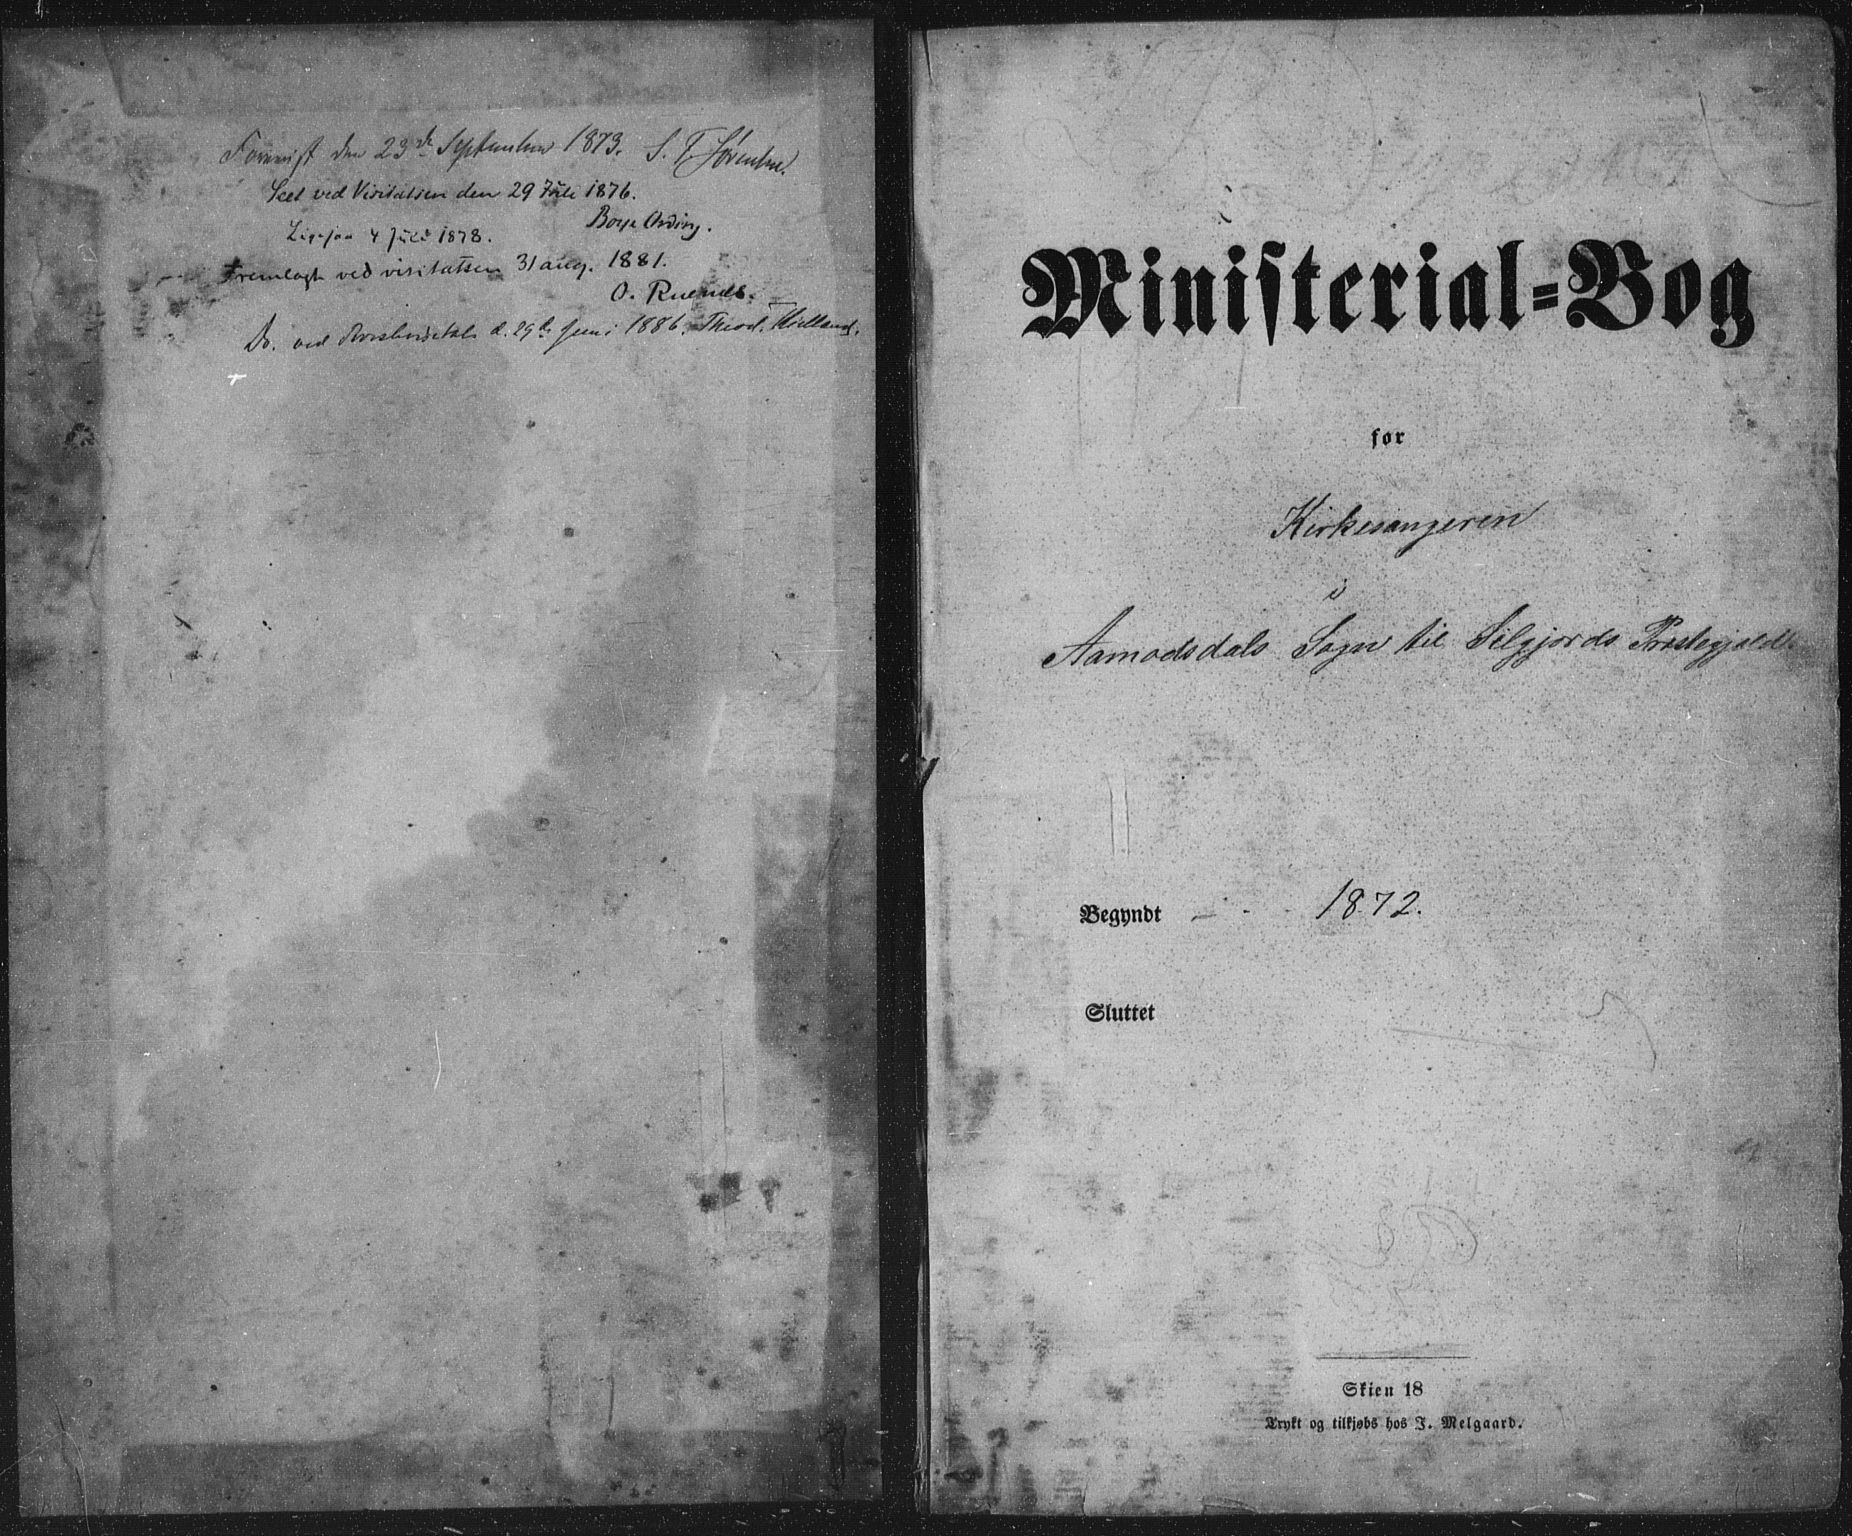 Forevist den 23de September 1873. S. T. Sørensen.
Seet ved Visitatsen den 29 Juli 1876.
Børge Ording.
Ligesaa 4 Juli 1878.
Fremlagt ved visitatsen 31 aug. 1881.
O. Ruenes.
Do. ved d. 29de Juni 1886. Theod. Kielland.
Ministerial=Bog
for
Kirkesangeren
i
Aamodsdals Sogn til Silgjords Præstegjæld.
Begyndt 1872.
Sluttet
Skien 18
Trykt og tilkjøbs hos J. Melgaard.